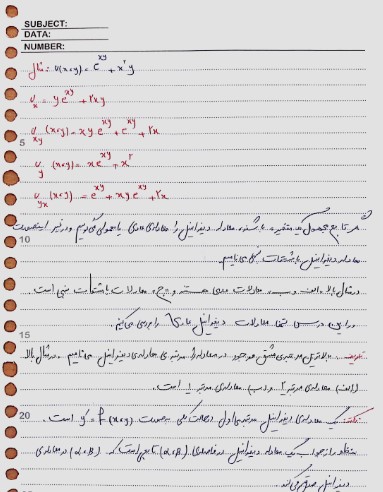 SUBJECT:
DATA:
NUMBER:
مثال: u(x,y) = e^{xy} + x^2 y
u_x = y e^{xy} + ۲xy
5
u_{xy}(x,y) = xy e^{xy} + e^{xy} + ۲x
u_y(x,y) = x e^{xy} + x^۲
u_{yx}(x,y) = e^{xy} + xy e^{xy} + ۲x
هر تابع مجهول یک متغیره باشد، معادله دیفرانسیل را معادله‌ی عادی یا معمولی گوییم و در غیر اینصورت
10
معادله دیفرانسیل با مشتقات می نامیم.
در مثال بالا الف و ب، معادلات عادی هستند و ج، معادلات با مشتقات نسبی است
در این درس تنها معادلات دیفرانسیل عادی را بررسی می‌کنیم.
15
تعریف: بالاترین مرتبه‌ی مشتق موجود در معادله را مرتبه‌ی معادله‌ی دیفرانسیل می نامیم. در مثال بالا
(الف) معادله‌ی مرتبه ۲ و (ب) معادله‌ی مرتبه ۱ است.
20
نکته: یک معادله‌ی دیفرانسیل مرتبه‌ی اول در حالت کلی بصورت y' = f(x,y) است.
منظور از جواب یک معادله دیفرانسیل در فاصله‌ی (α,β) تابعی است که (α,β) در معادله‌ی
دیفرانسیل صدق می‌کند.